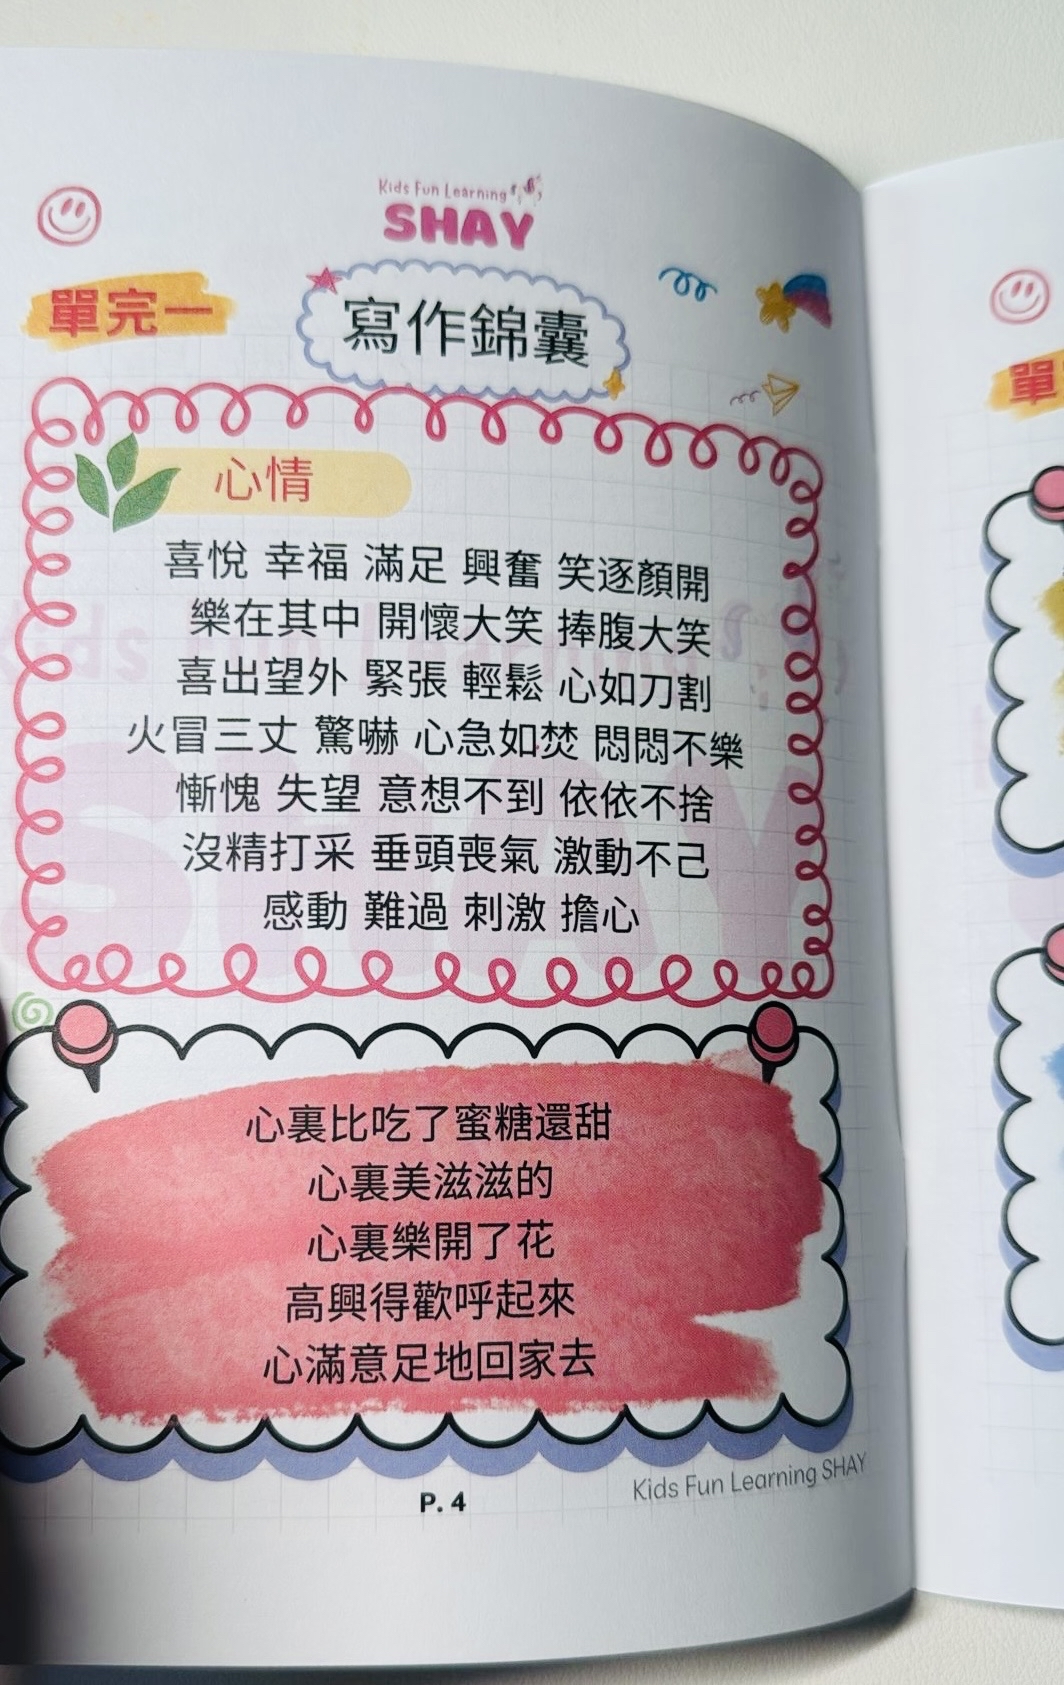 Kids Fun Learning
SHAY
單完一
寫作錦囊
心情
喜悅 幸福 滿足 興奮 笑逐顏開
樂在其中 開懷大笑 捧腹大笑
喜出望外 緊張 輕鬆 心如刀割
火冒三丈 驚嚇 心急如焚 悶悶不樂
慚愧 失望 意想不到 依依不捨
沒精打采 垂頭喪氣 激動不己
感動 難過 刺激 擔心
心裏比吃了蜜糖還甜
心裏美滋滋的
心裏樂開了花
高興得歡呼起來
心滿意足地回家去
Kids Fun Learning SHAY
P. 4
單